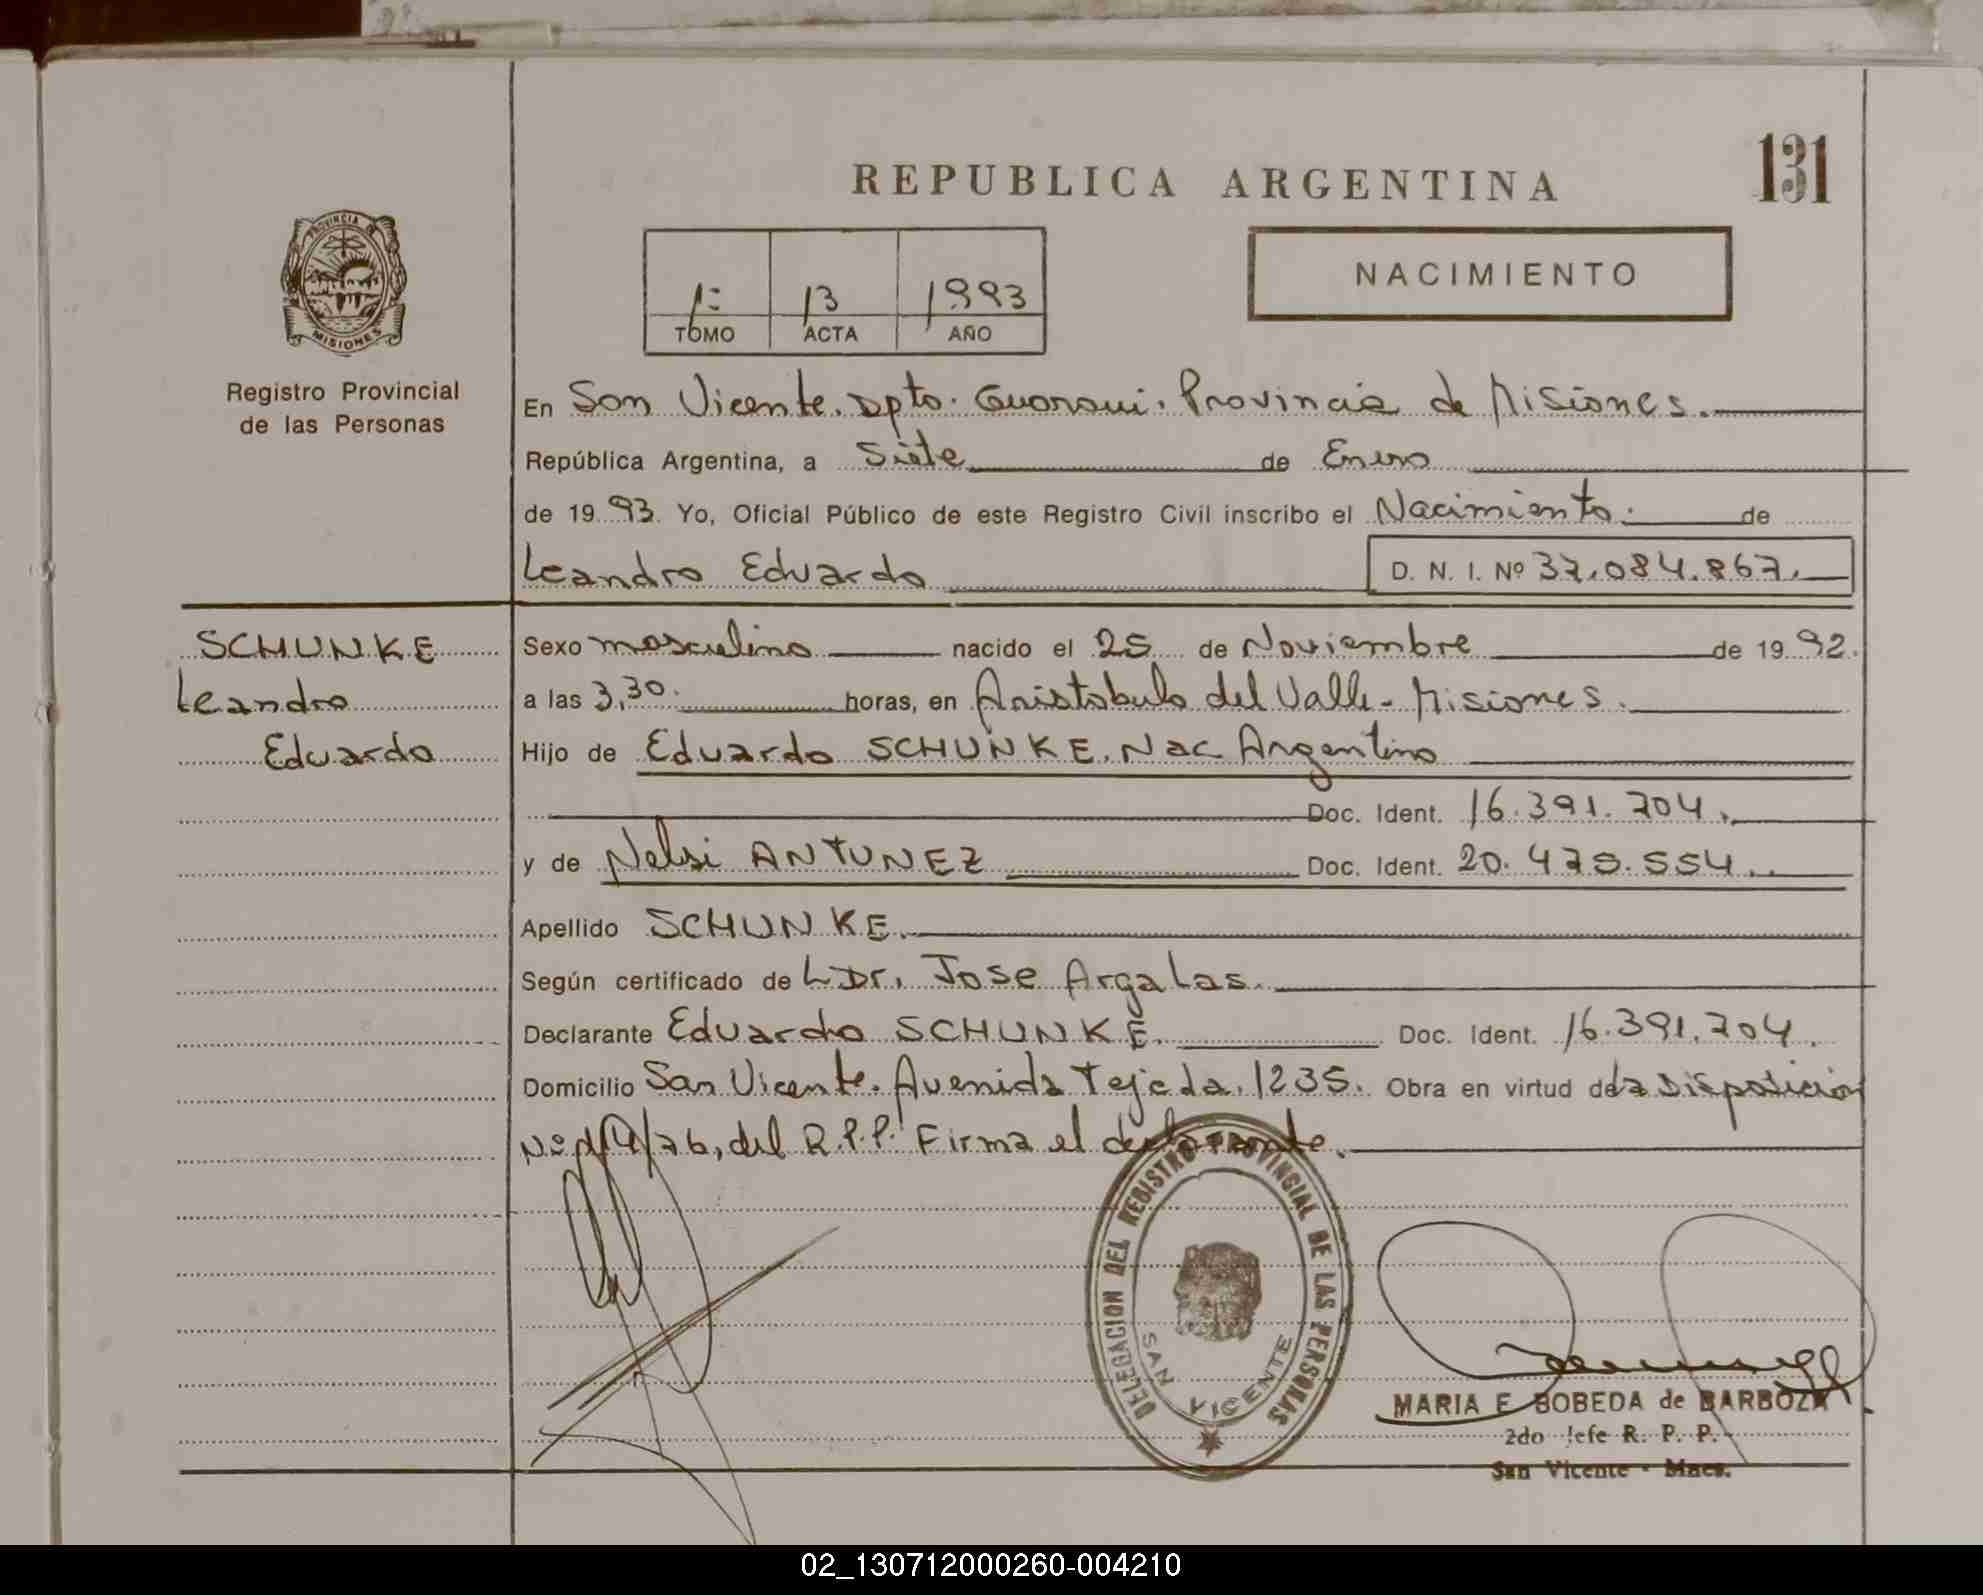 131
REPUBLICA ARGENTINA
NACIMIENTO
PROVINCIA DE
MISIONES
Registro Provincial
de las Personas
1º 13 1993
TOMO ACTA AÑO
En San Vicente. Dpto. Guarani. Provincia de Misiones.
República Argentina, a Siete de Enero
de 1993. Yo, Oficial Público de este Registro Civil inscribo el Nacimiento. de
Leandro Eduardo D. N. I. Nº 37.084.867.
SCHUNKE
Leandro
Eduardo
Sexo masculino nacido el 25 de Noviembre de 1992.
a las 3,30. horas, en Aristobulo del Valle - Misiones.
Hijo de Eduardo SCHUNKE. Nac Argentino
Doc. Ident. 16.391.704.
y de Nelsi ANTUNEZ Doc. Ident. 20.475.554.
Apellido SCHUNKE.
Según certificado de Dr. Jose Argalas.
Declarante Eduardo SCHUNKE. Doc. Ident. 16.391.704.
Domicilio San Vicente. Avenida Tejeda. 1235. Obra en virtud de la Disposicion
Nº /76, del R.P.P. Firma el declarante.
DELEGACION DEL REGISTRO PROVINCIAL DE LAS PERSONAS
SAN VICENTE
MARIA E BOBEDA de BARBOZA
2do Jefe R. P. P.
San Vicente - Mnes.
02_130712000260-004210